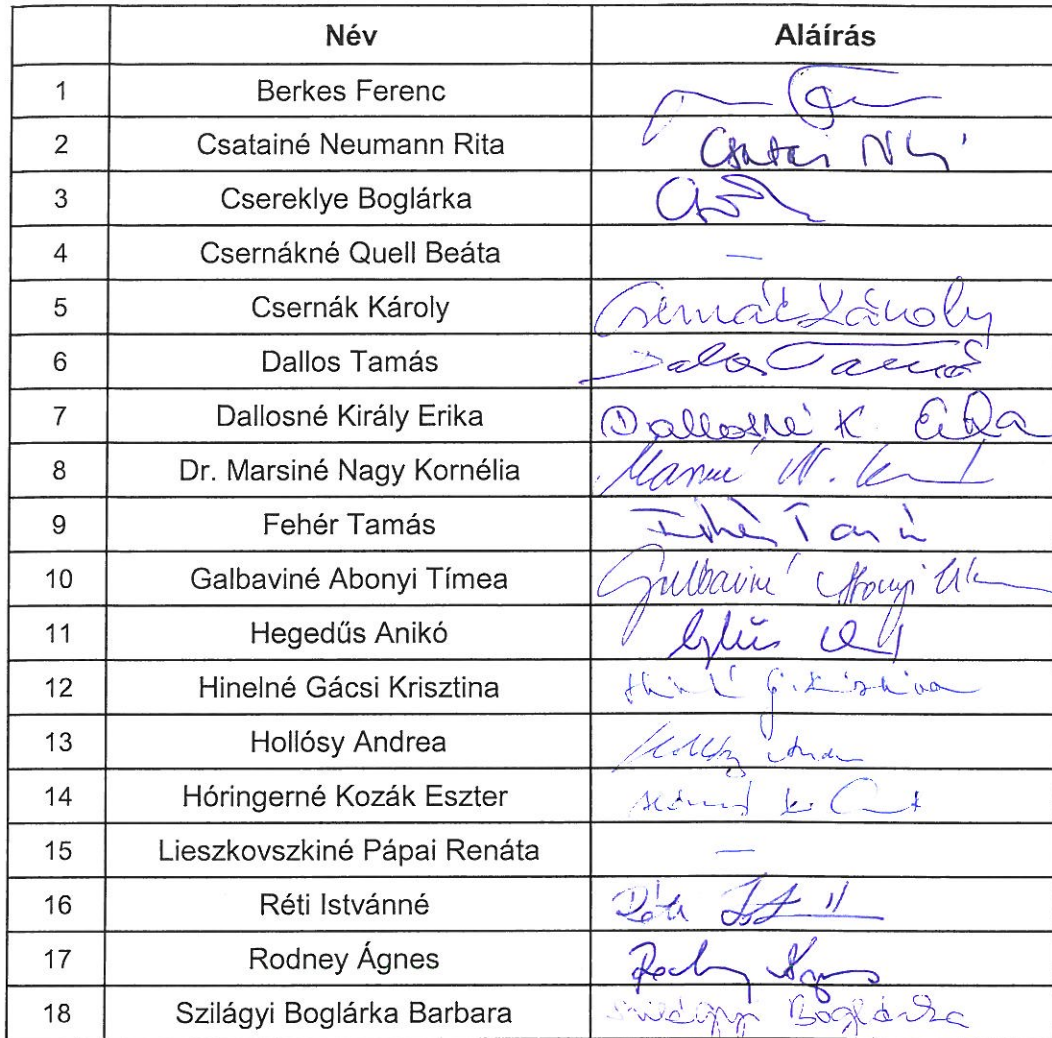 Név Aláírás
1 Berkes Ferenc
2 Csatainé Neumann Rita Csatai N
3 Csereklye Boglárka
4 Csernákné Quell Beáta —
5 Csernák Károly Csernák Károly
6 Dallos Tamás Dallos Tamás
7 Dallosné Király Erika Dallosné K. Erika
8 Dr. Marsiné Nagy Kornélia Marsiné N.
9 Fehér Tamás Fehér Tamás
10 Galbaviné Abonyi Tímea Galbaviné Abonyi
11 Hegedűs Anikó
12 Hinelné Gácsi Krisztina G. Krisztina
13 Hollósy Andrea
14 Hóringerné Kozák Eszter
15 Lieszkovszkiné Pápai Renáta —
16 Réti Istvánné Réti
17 Rodney Ágnes Rodney Ágnes
18 Szilágyi Boglárka Barbara Szilágyi Boglárka